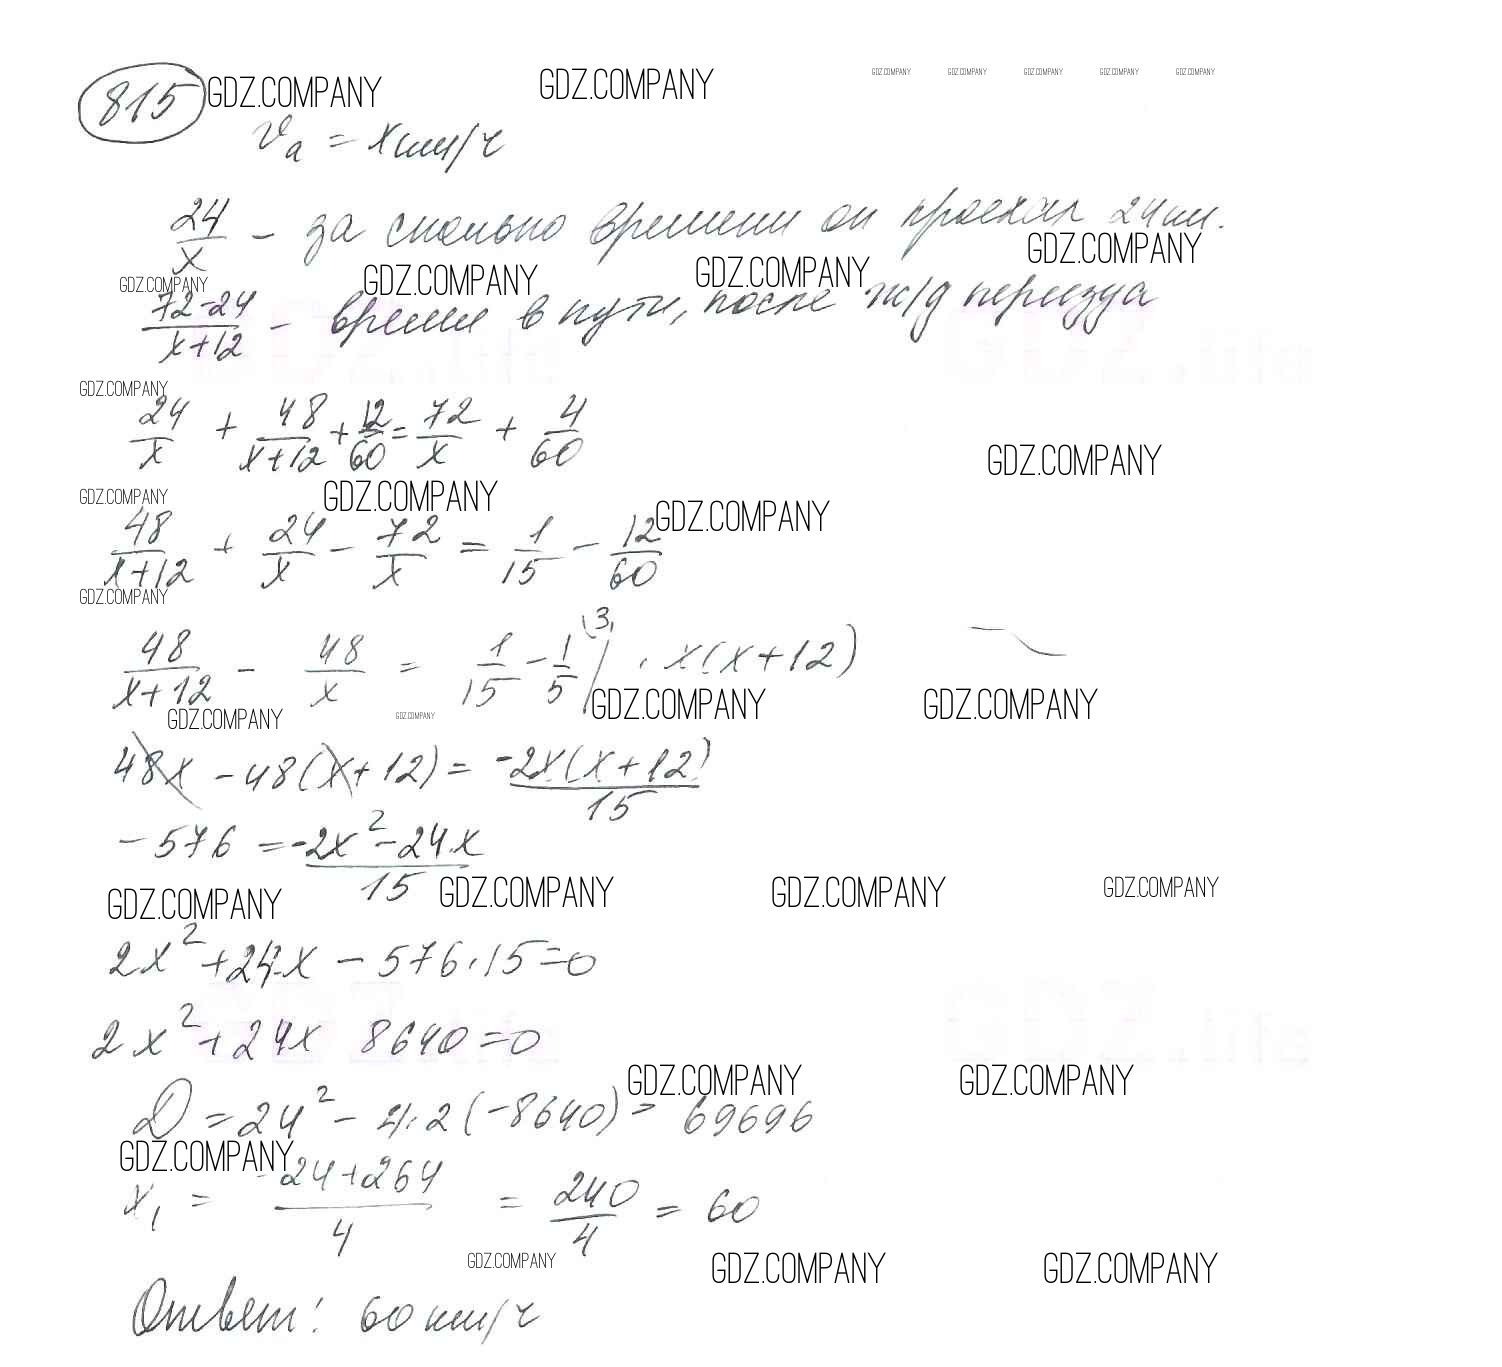 815 GDZ.COMPANY GDZ.COMPANY GDZ.COMPANY GDZ.COMPANY GDZ.COMPANY GDZ.COMPANY GDZ.COMPANY
vₐ = x км/ч
24/x – за сколько времени он проехал 24 км.
GDZ.COMPANY GDZ.COMPANY GDZ.COMPANY GDZ.COMPANY
72-24/x+12 – время в пути, после ж/д переезда
GDZ.COMPANY
24/x + 48/x+12 + 12/60 = 72/x + 4/60
GDZ.COMPANY
GDZ.COMPANY GDZ.COMPANY GDZ.COMPANY
48/x+12 + 24/x – 72/x = 1/15 – 12/60
GDZ.COMPANY
48/x+12 – 48/x = 1/15 – 1/5 (3 | · x(x+12)
GDZ.COMPANY GDZ.COMPANY GDZ.COMPANY GDZ.COMPANY
48x – 48(x+12) = -2x(x+12)/15
–576 = -2x²-24x/15
GDZ.COMPANY GDZ.COMPANY GDZ.COMPANY GDZ.COMPANY
2x² + 24x – 576·15 = 0
2x² + 24x 8640 = 0
GDZ.COMPANY GDZ.COMPANY
D = 24² – 4·2(-8640) = 69696
GDZ.COMPANY
x₁ = -24+264/4 = 240/4 = 60
GDZ.COMPANY GDZ.COMPANY GDZ.COMPANY
Ответ: 60 км/ч